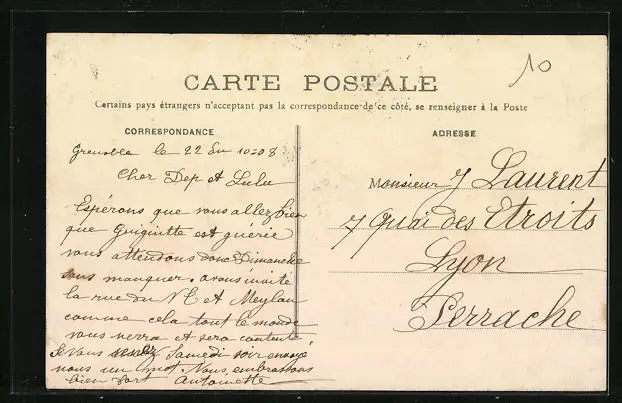 10
CARTE POSTALE
Certains pays étrangers n'acceptant pas la correspondance de ce côté, se renseigner à la Poste
CORRESPONDANCE
ADRESSE
Grenoble le 22 10-08
Cher Dep et Lulu
Espérons que vous allez bien
que Guiguitte est guérie
vous attendons donc Dimanche
sans manquer. avons invité
la rue du et Meylan
comme cela tout le monde
vous verra et sera contente
Si vous Samedi soir
nous un mot Nous embrassons
bien fort Antoinette
Monsieur J Laurent
7 Quai des Etroits
Lyon
Perrache